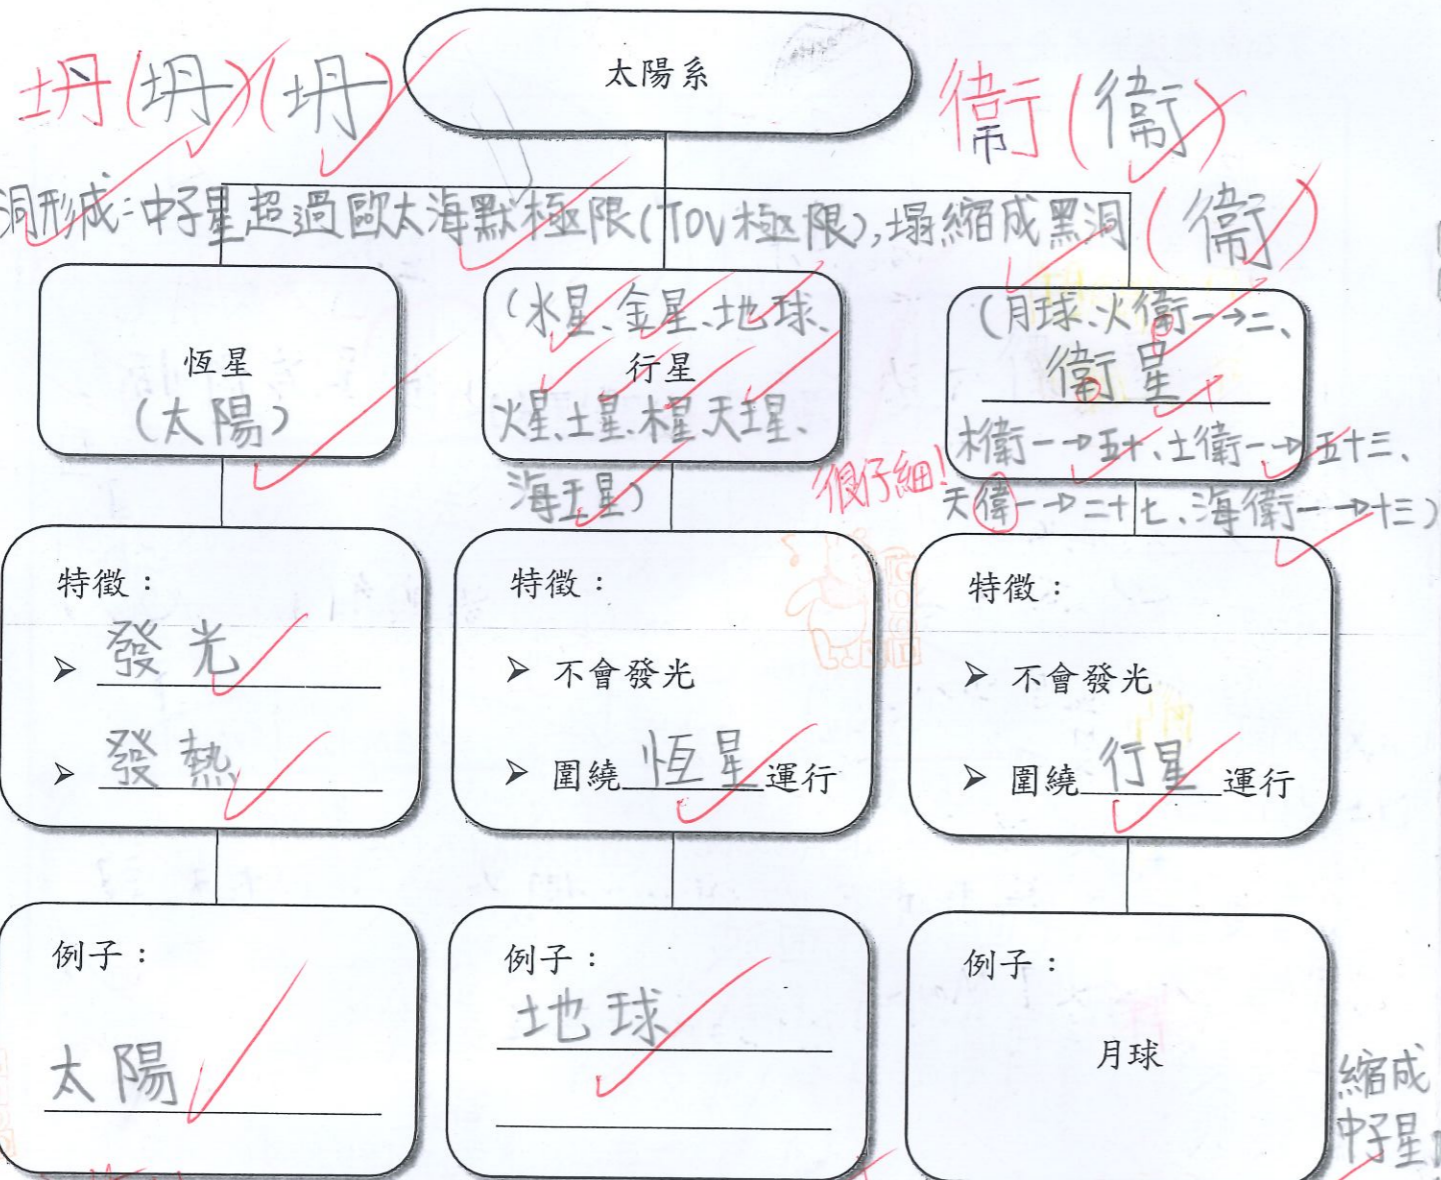 太陽系
坍(坍)(坍)
衞(衞)
(衞)
洞形成:中子星超過歐太海默極限(TOV極限),塌縮成黑洞
恆星
(太陽)
(水星、金星、地球、
行星
火星、土星、木星、天王星、
海王星)
(月球、火衞一→二、
衞星
木衞一→五十、土衞一→五十三、
天偉一→二十七、海衞一→十三)
很仔細!
特徵:
➢ 發光
➢ 發熱
特徵:
➢ 不會發光
➢ 圍繞恆星運行
特徵:
➢ 不會發光
➢ 圍繞行星運行
例子:
太陽
例子:
地球
例子:
月球
縮成
中子星